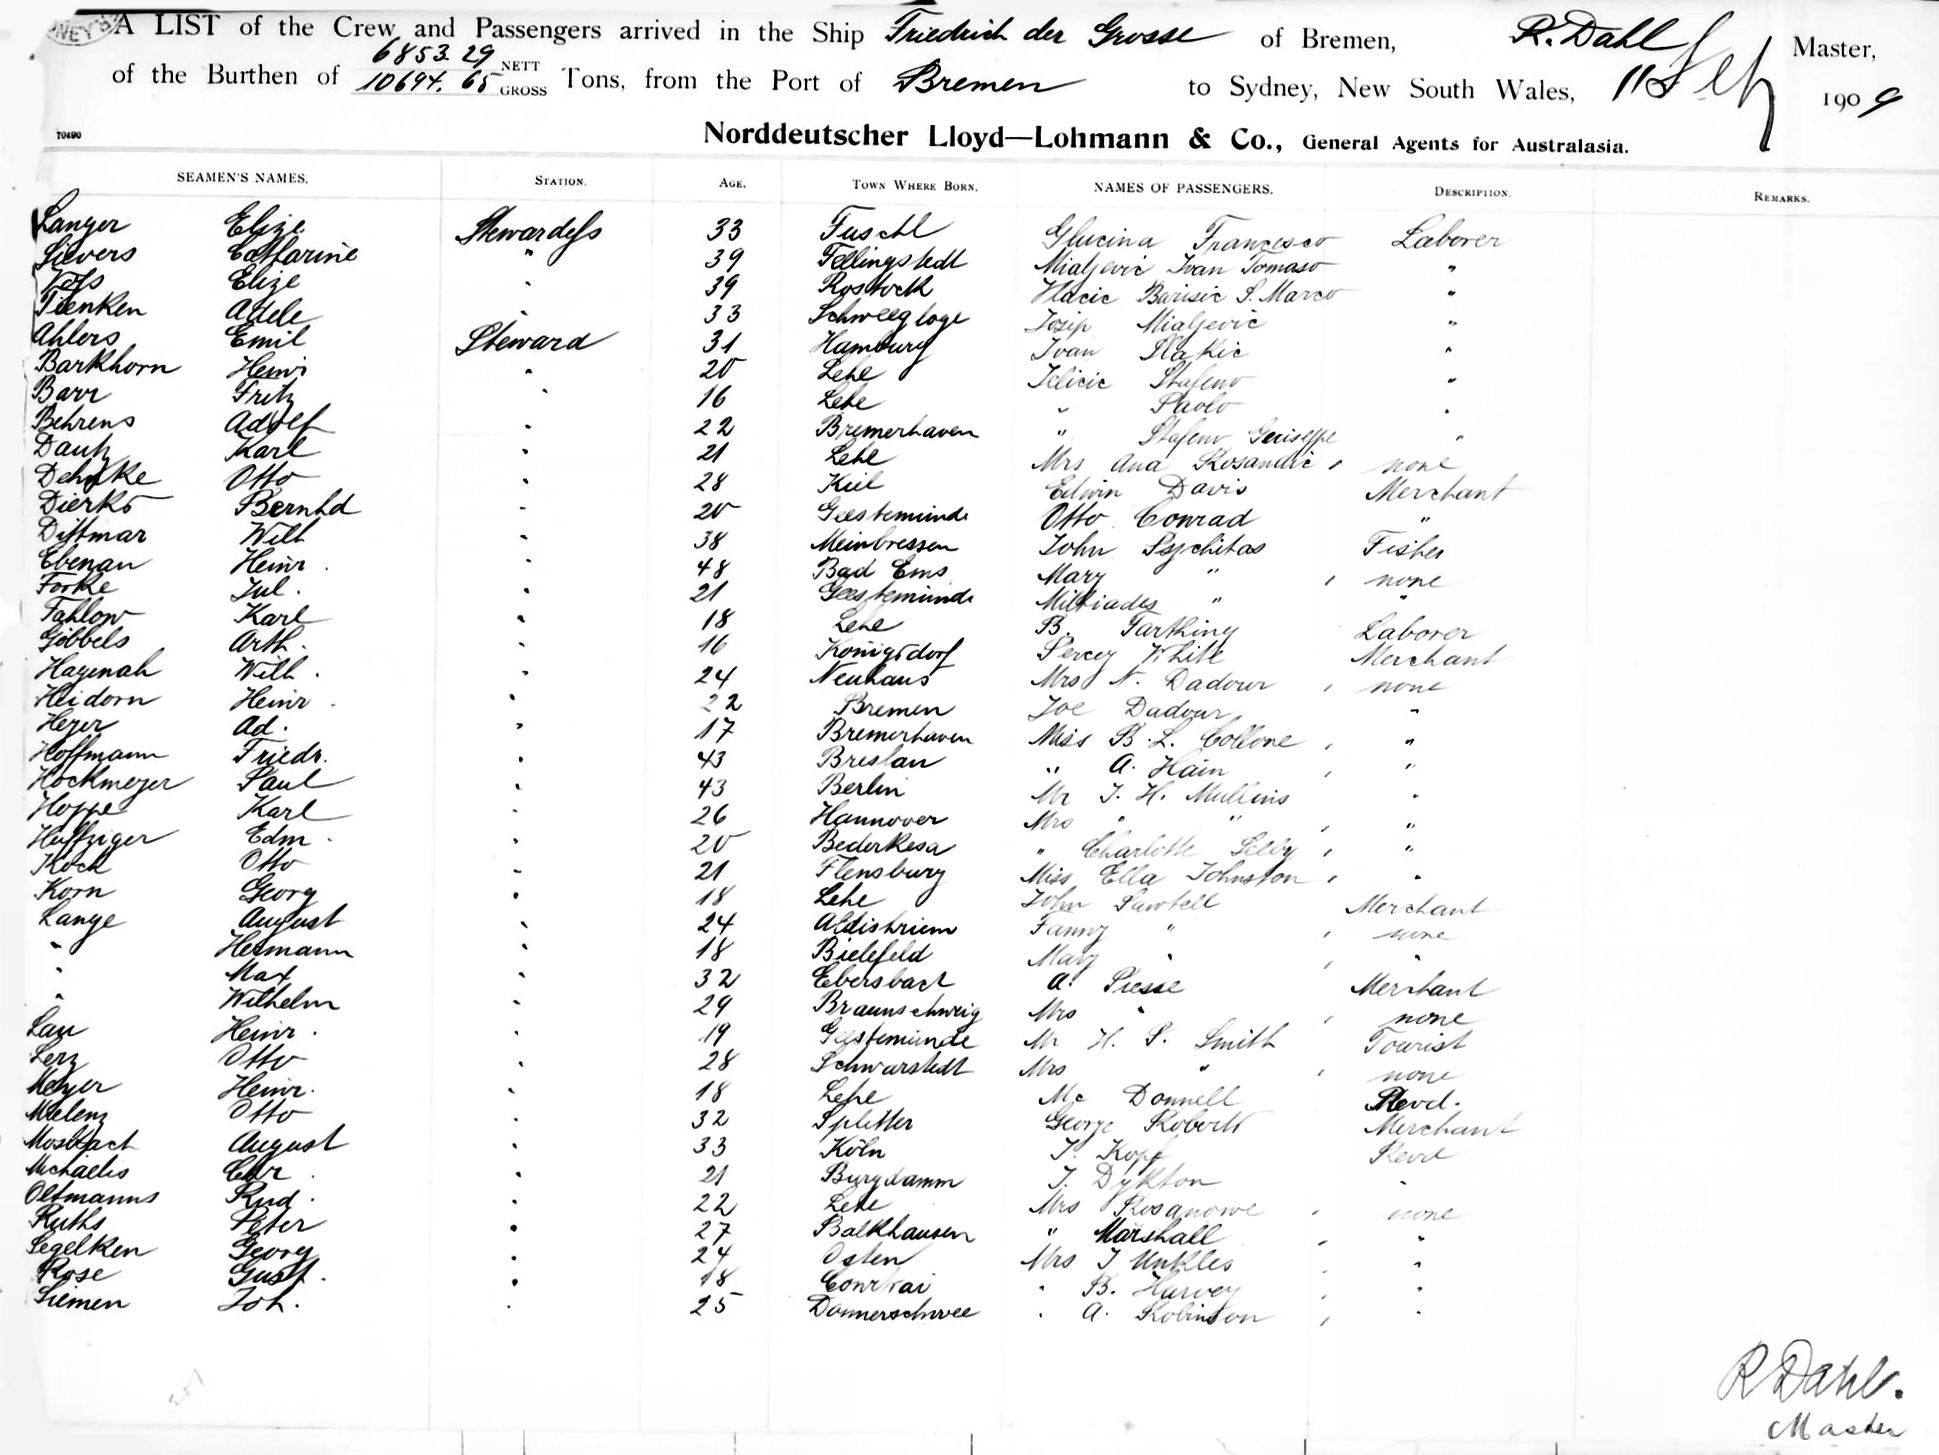 A LIST of the Crew and Passengers arrived in the Ship Friedrich der Grosse of Bremen, R. Dahl Master,
of the Burthen of 6853.29 NETT 10694.65 GROSS Tons, from the Port of Bremen to Sydney, New South Wales, 11 Sep 1909
70490
Norddeutscher Lloyd—Lohmann & Co., General Agents for Australasia.
SEAMEN'S NAMES. STATION. AGE. TOWN WHERE BORN. NAMES OF PASSENGERS. DESCRIPTION. REMARKS.
Langer Elize Stewardess 33 Tuschl Glucina Francesco Laborer
Sievers Catharine " 39 Tellingstedt Mialjevic Ivan Tomaso "
Voss Elize " 39 Rostock Vlacic Barisic S. Marco "
Tienken Adele " 33 Schweegloge Josip Mialjevic "
Ahlers Emil Steward 31 Hamburg Ivan Plakic "
Barkhorn Heinr " 20 Lehe Jelicic Stefano "
Barr Fritz " 16 Lehe " Paolo "
Behrens Adolf " 22 Bremerhaven " Giuseppe "
Dautz Karl " 21 Lehe Mrs Ana Rosandic none
Dehnke Otto " 28 Kiel Edwin Davis Merchant
Dierks Bernhd " 20 Geestemünde Otto Conrad "
Dittmar Wilh " 38 Meinbressen John Psychitas Fisher
Ebenau Heinr. " 48 Bad Ems Mary " none
Forke Jul. " 21 Geestemünde Miltiades " "
Fahlow Karl " 18 Lehe B. Farthing Laborer
Gibbels Arth. " 16 Königsdorf Percey White Merchant
Hagenah Wilh. " 24 Neuhaus Mrs N. Dadour none
Heidorn Heinr. " 22 Bremen Joe Dadour "
Heyer Ad. " 17 Bremerhaven Miss B. L. Collone "
Hoffmann Friedr. " 43 Breslau " A. Hain "
Hockmeyer Paul " 43 Berlin Mr T. H. Mullins "
Hoppe Karl " 26 Hannover Mrs " " "
Huffziger Edm. " 20 Bederkesa " Charlotte Selby "
Kock Otto " 21 Flensburg Miss Ella Johnston "
Korn Georg " 18 Lehe John Sawtell Merchant
Lange August " 24 Fanny " none
" Hermann " 18 Bielefeld Mary " "
" Max " 32 Ebersbach A. Piesse Merchant
" Wilhelm " 29 Braunschweig Mrs " none
Lau Heinr. " 19 Geestemünde Mr H. S. Smith Tourist
Lerz Otto " 28 Schwarstedt Mrs " none
Meyer Heinr. " 18 Lehe Mc Donnell Revd.
Mielenz Otto " 32 Splitter George Roberts Merchant
Mosbach August " 33 Köln T. Kopf Revd
Michaelis Chr. " 21 Burgdamm J. Dykton "
Oltmanns Rud. " 22 Lehe Mrs Rosanowe none
Ruths Peter " 27 Balkhausen " Marshall "
Segelken Georg " 24 Osten Mrs J Unkles "
Rose Gust. " 18 Courtrai " B. Harvey "
Siemen Joh. " 25 Donnerschwee " A. Robinson "
R Dahl.
Master